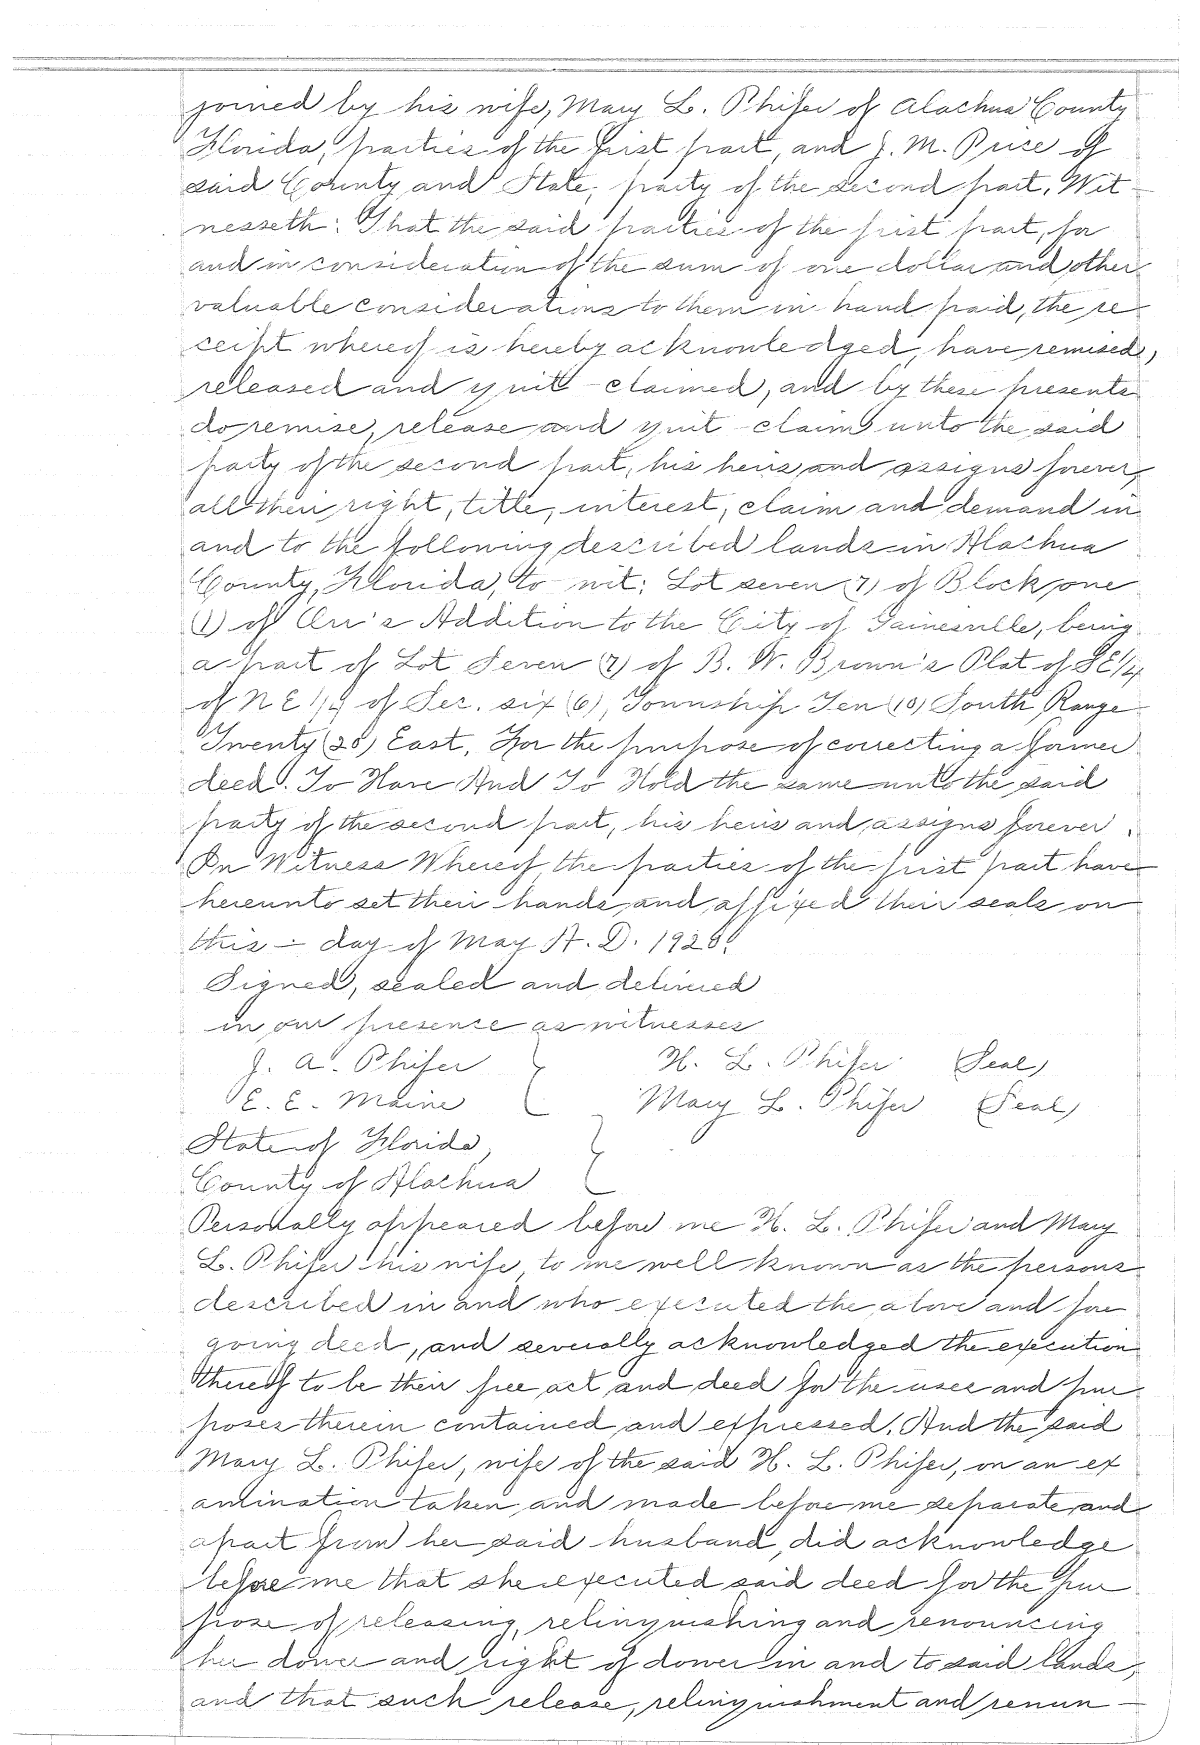 joined by his wife, Mary L. Phifer of Alachua County
Florida, parties of the first part, and J. M. Price of
said County and State, party of the second part, Wit-
nesseth: That the said parties of the first part, for
and in consideration of the sum of one dollar and other
valuable considerations to them in hand paid, the re-
ceipt whereof is hereby acknowledged, have remised,
released and quit-claimed, and by these presents
do remise, release and quit-claim unto the said
party of the second part, his heirs and assigns forever,
all their right, title, interest, claim and demand in
and to the following described lands in Alachua
County, Florida, to-wit: Lot seven (7) of Block one
(1) of Orr's Addition to the City of Gainesville, being
a part of Lot Seven (7) of B. W. Brown's Plat of SE 1/4
of NE 1/4 of Sec. six (6), Township Ten (10) South Range
Twenty (20) East, For the purpose of correcting a former
deed. To Have And To Hold the same unto the said
party of the second part, his heirs and assigns forever.
In Witness Whereof, the parties of the first part have
hereunto set their hands and affixed their seals on
this - day of May A. D. 1920.
Signed, sealed and delivered
in our presence as witnesses
J. A. Phifer H. L. Phifer (Seal)
E. E. Maine Mary L. Phifer (Seal)
State of Florida,
County of Alachua
Personally appeared before me H. L. Phifer and Mary
L. Phifer his wife, to me well known as the persons
described in and who executed the above and fore
going deed, and severally acknowledged the execution
thereof to be their free act and deed for the uses and pur
poses therein contained and expressed. And the said
Mary L. Phifer, wife of the said H. L. Phifer, on an ex
amination taken and made before me separate and
apart from her said husband, did acknowledge
before me that she executed said deed for the pur
pose of releasing, relinquishing and renouncing
her dower and right of dower in and to said lands,
and that such release, relinquishment and renun-